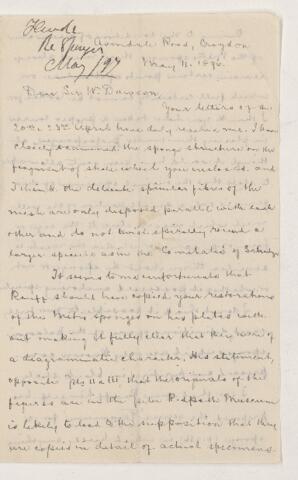 Hinde
Re Sponges
May/97
Avondale Road, Croydon
May 11. 1896.
Dear Sir Wm Dawson,
Your letters of the
20th & 23rd April have duly reached me. I have
closely examined the sponge structure on the
fragment of shale which you enclosed and
I think the delicate spicular fibres of the
mesh are only disposed parallel with each
other and do not twist spirally round a
larger spicule as in the "Comitatae" of Schulze
It seems to me unfortunate that
Rauff should have copied your restorations
of the Metis sponges on his plates with-
out making it fully clear that they were of
a diagrammatic character. His statement,
opposite pls that the originals of the
figures are in the Peter Redpath Museum
is likely to lead to the supposition that they
are copies in detail of actual specimens